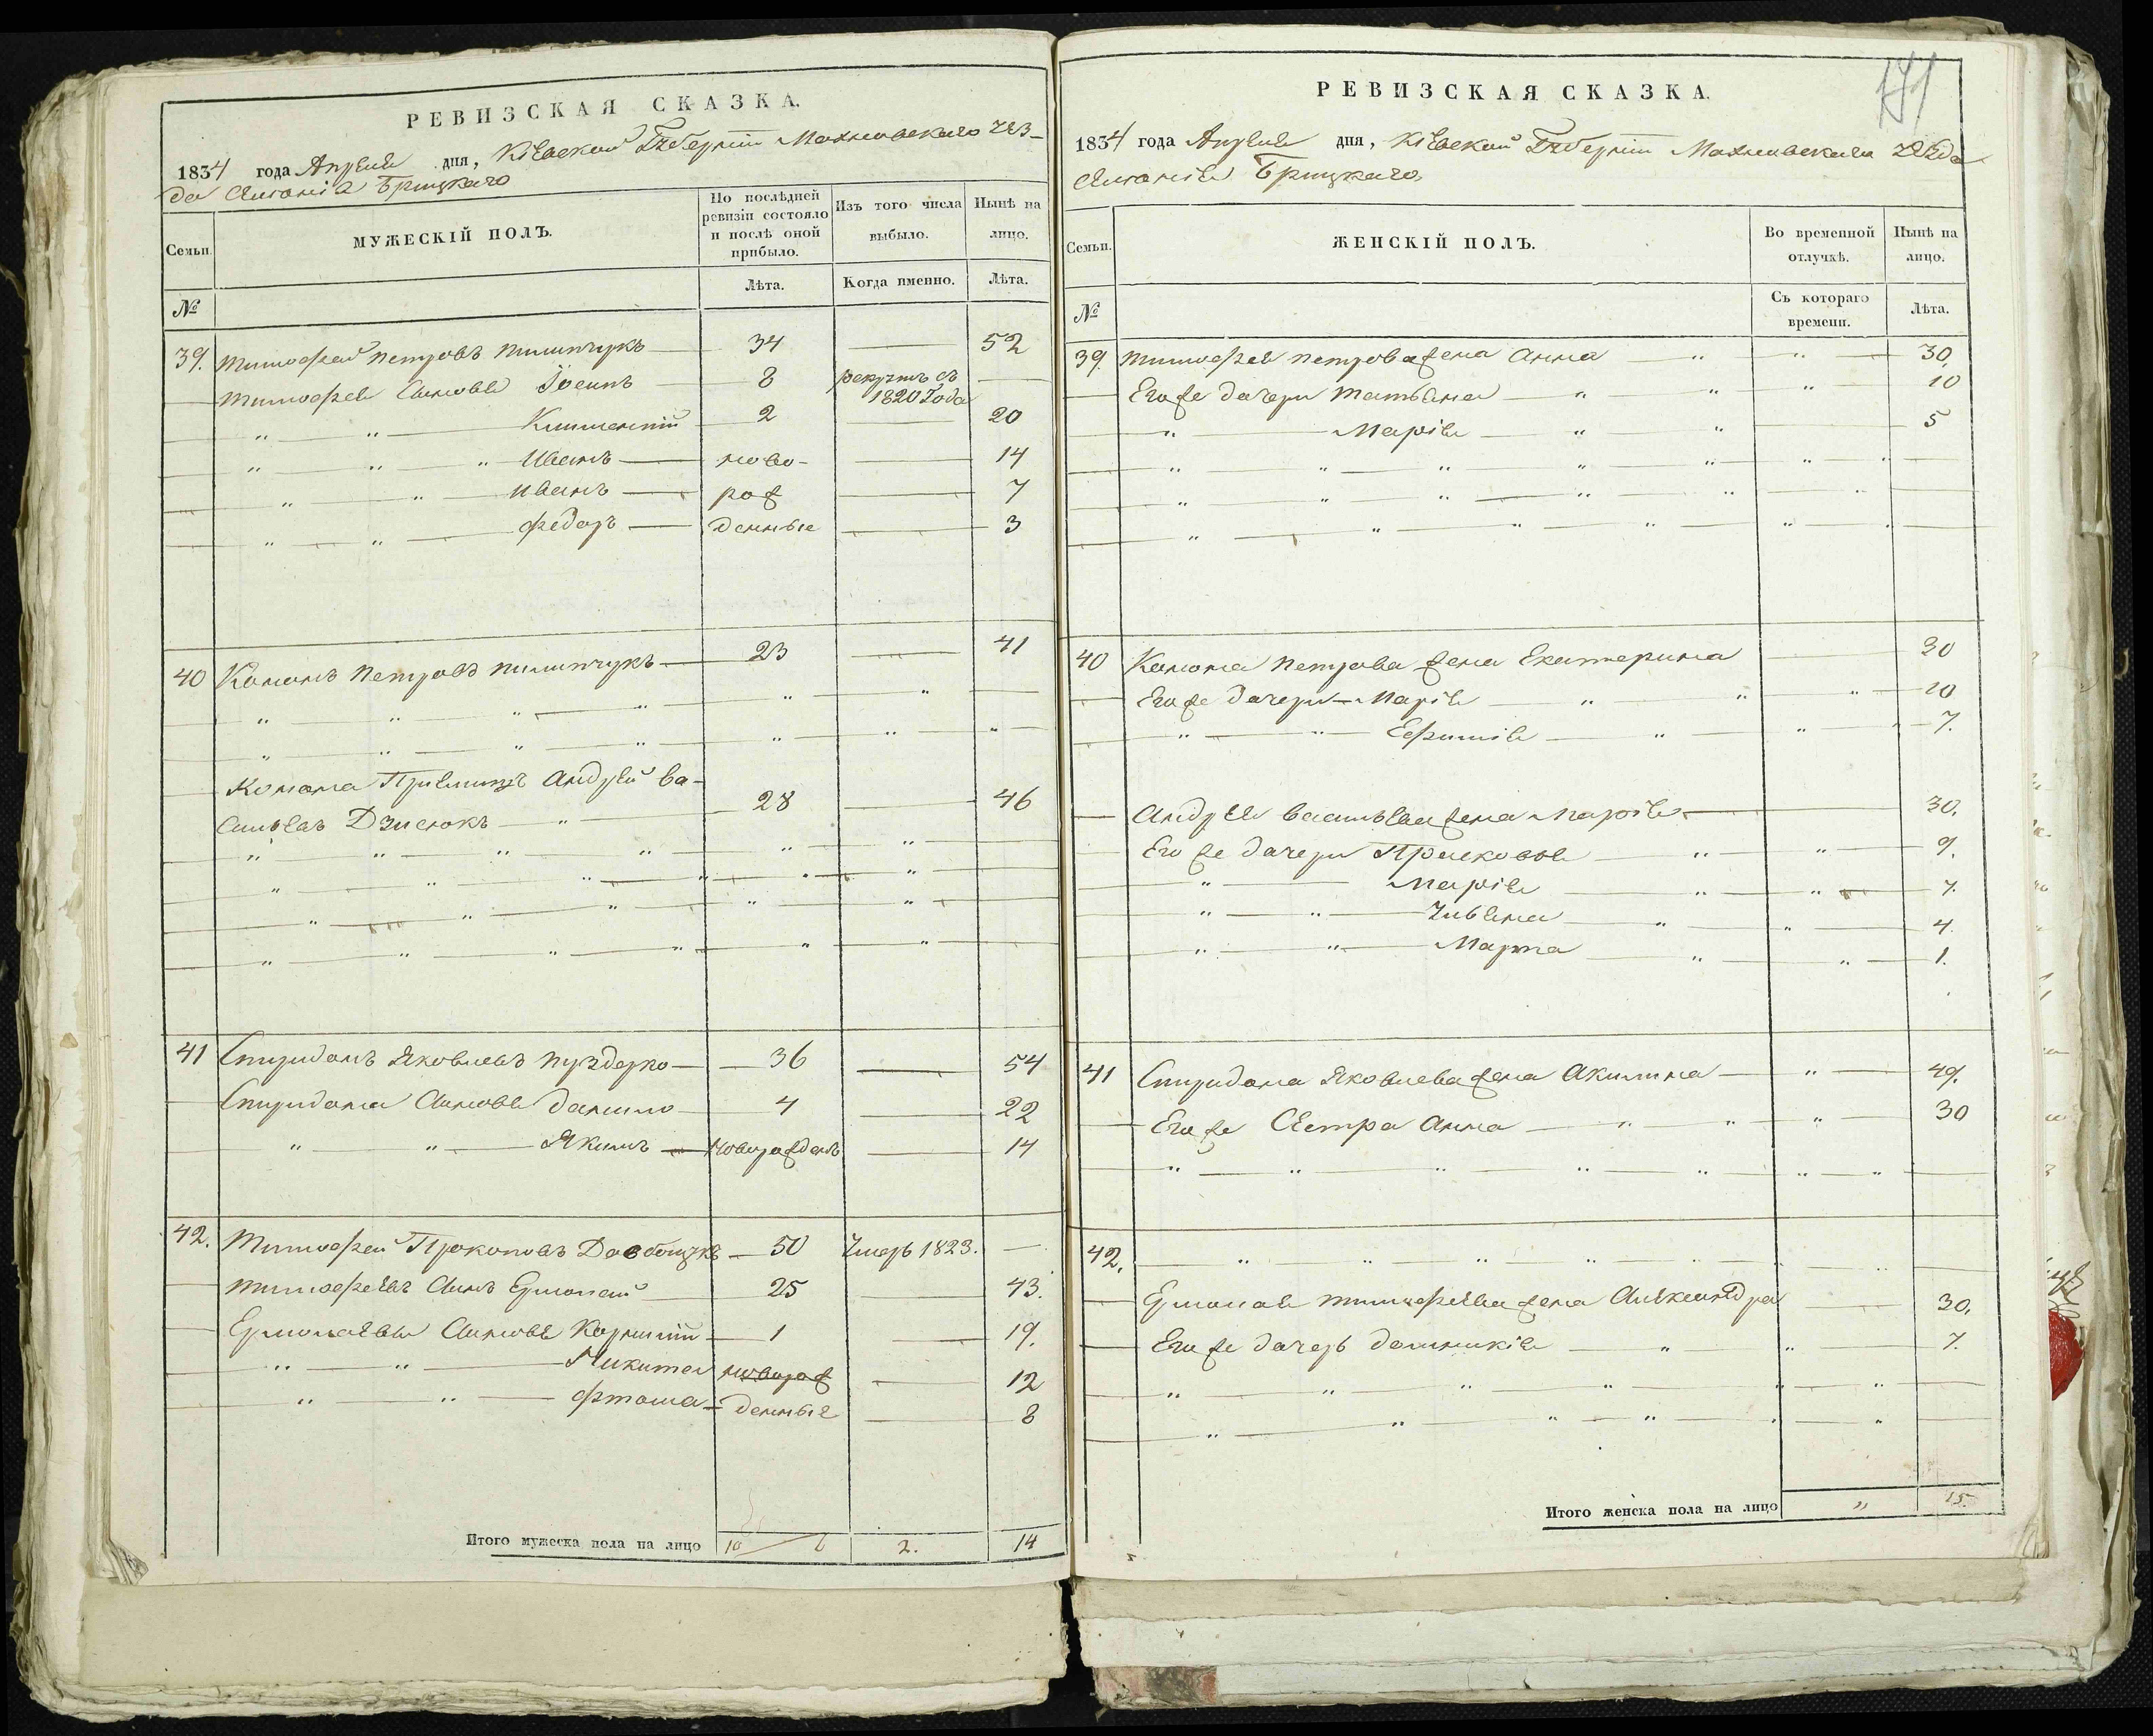 РЕВИЗСКАЯ СКАЗКА.
1834 года Апрѣля дня, Кіевской Губерніи Махновскаго уѣз-
да Антонія Брицкаго
Семьи.
МУЖЕСКІЙ ПОЛЪ.
По послѣдней ревизіи состояло и послѣ оной прибыло.
Изъ того числа выбыло.
Нынѣ на лицо.
№
Лѣта.
Когда именно.
Лѣта.
39. Тимофей Петровъ Пилипчукъ 34 52
Тимофея Сыновья Іосипъ 8 рекрутъ съ 1820 Года
" " Климентій 2 20
" " " Иванъ ново- 14
" " Иванъ рож 7
" " Федоръ денные 3
40 Кононъ Петровъ Пилипчукъ 23 41
" " " " " "
" " " " " " "
Конона Пріемышъ Андрей Ва-
сильевъ Дзисюкъ " 28 46
" " " " " "
" " " " " "
" " " " "
" " " " " "
41 Спиридонъ Яковлевъ Пуздерко 36 54
Спиридона Сыновья Данило 4 22
" " Якимъ Новорожденъ 14
42. Тимофей Прокоповъ 50 Умеръ 1823.
Тимофеевъ Сынъ Ермолай 25 43.
Ермолаевы Сыновья Корнилій 1 19.
" " Никита новорож 12
" " Фтома денные 8
Итого мужеска пола на лицо 10 6 2. 14
171
РЕВИЗСКАЯ СКАЗКА.
1834 года Апрѣля дня, Кіевской Губерніи Махновскаго уѣзда
Антонія Брицкаго,
Семьи.
ЖЕНСКІЙ ПОЛЪ.
Во временной отлучкѣ.
Нынѣ на лицо.
№
Съ котораго времени.
Лѣта.
39. Тимофея Петрова жена Анна " " 30
Его же дочери Татьяна " " " 10
" Марія " " 5
" " " " " " "
" " " " " "
" " " " " "
40 Конона Петрова жена Екатерина 30
Его же дочери Марія " " " 10
" " Ефимія " " " 7.
Андрея Васильева жена Марія 30.
Его же дочери Прасковья " " 9.
" Марія " " 7.
" " Ульяна " " 4.
" " Марта " " 1.
41 Спиридона Яковлева жена Акилина " 49.
Его же Сестра Анна " " " 30
" " " " " " "
42. " " " " " "
Ермолая Тимофеева жена Александра 30.
Его же дочерь Доминикія " " 7.
" " " " " "
" " " " " "
Итого женска пола на лицо " 15.